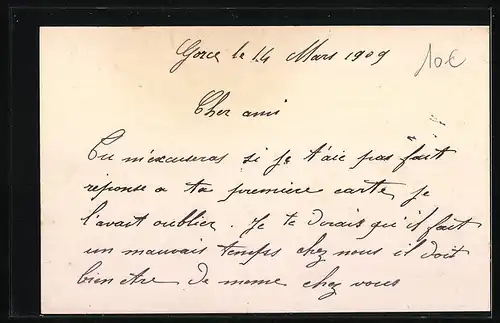 Gorce le 14 Mars 1909
10€
Cher ami
Tu m'excuseras si je t'aie pas fait
réponse a ta première carte, je
l'avait oublier. Je te dirais qu'il fait
un mauvais temps chez nous il doit
bien etre de meme chez vous